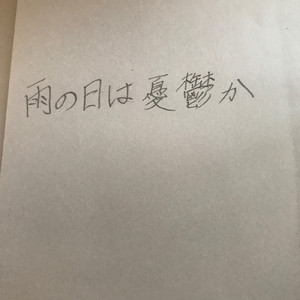 雨の日は憂鬱か